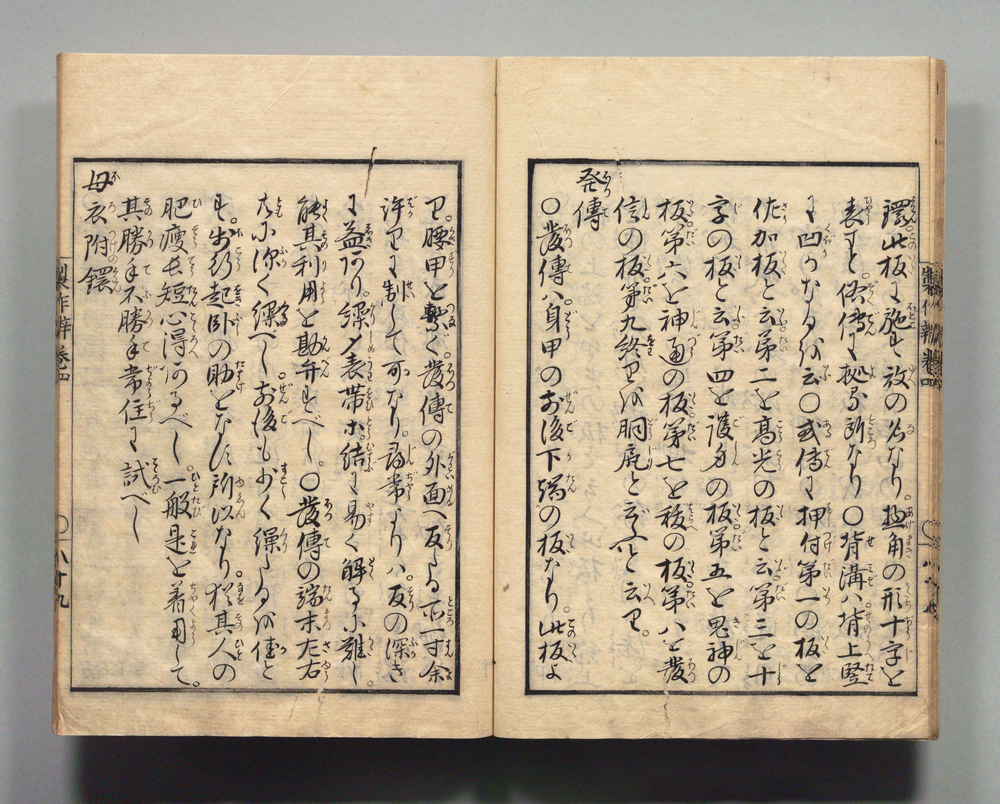 鐶此板に施す故の名なり。揚角の形十字を
表すと。俗傳に拠る所なり〇背溝ハ背上竪
に凹かなるを云〇或傳に押付第一の板と
佐加板と云第二を髙光の板と云第三を十
字の板と云第四を護身の板第五を鬼神の
板第六を神通の板第七を
板第八を發
信の板第九終りを胴尻と云と云り。
発傳
〇發傳ハ身甲の前後下端の板なり。此板よ
り。腰甲を繋ぐ。發傳の外面へ反たる
寸余
許りに制して可なり。尋常よりハ反の深き
に益あり。繰〆表帯
結に易く解るに難し。
能其利用を勘弁すべし。〇發傳の端末左右
共に深く繰べし。前後も少く繰たるを佳と
す。歩行起臥の助となす所以なり。猶其人の
肥瘦長短心得あるべし。一般是を着用して。
其勝手不勝手常住に試べし
母衣附鐶
製作辨 巻四
〇 八十九